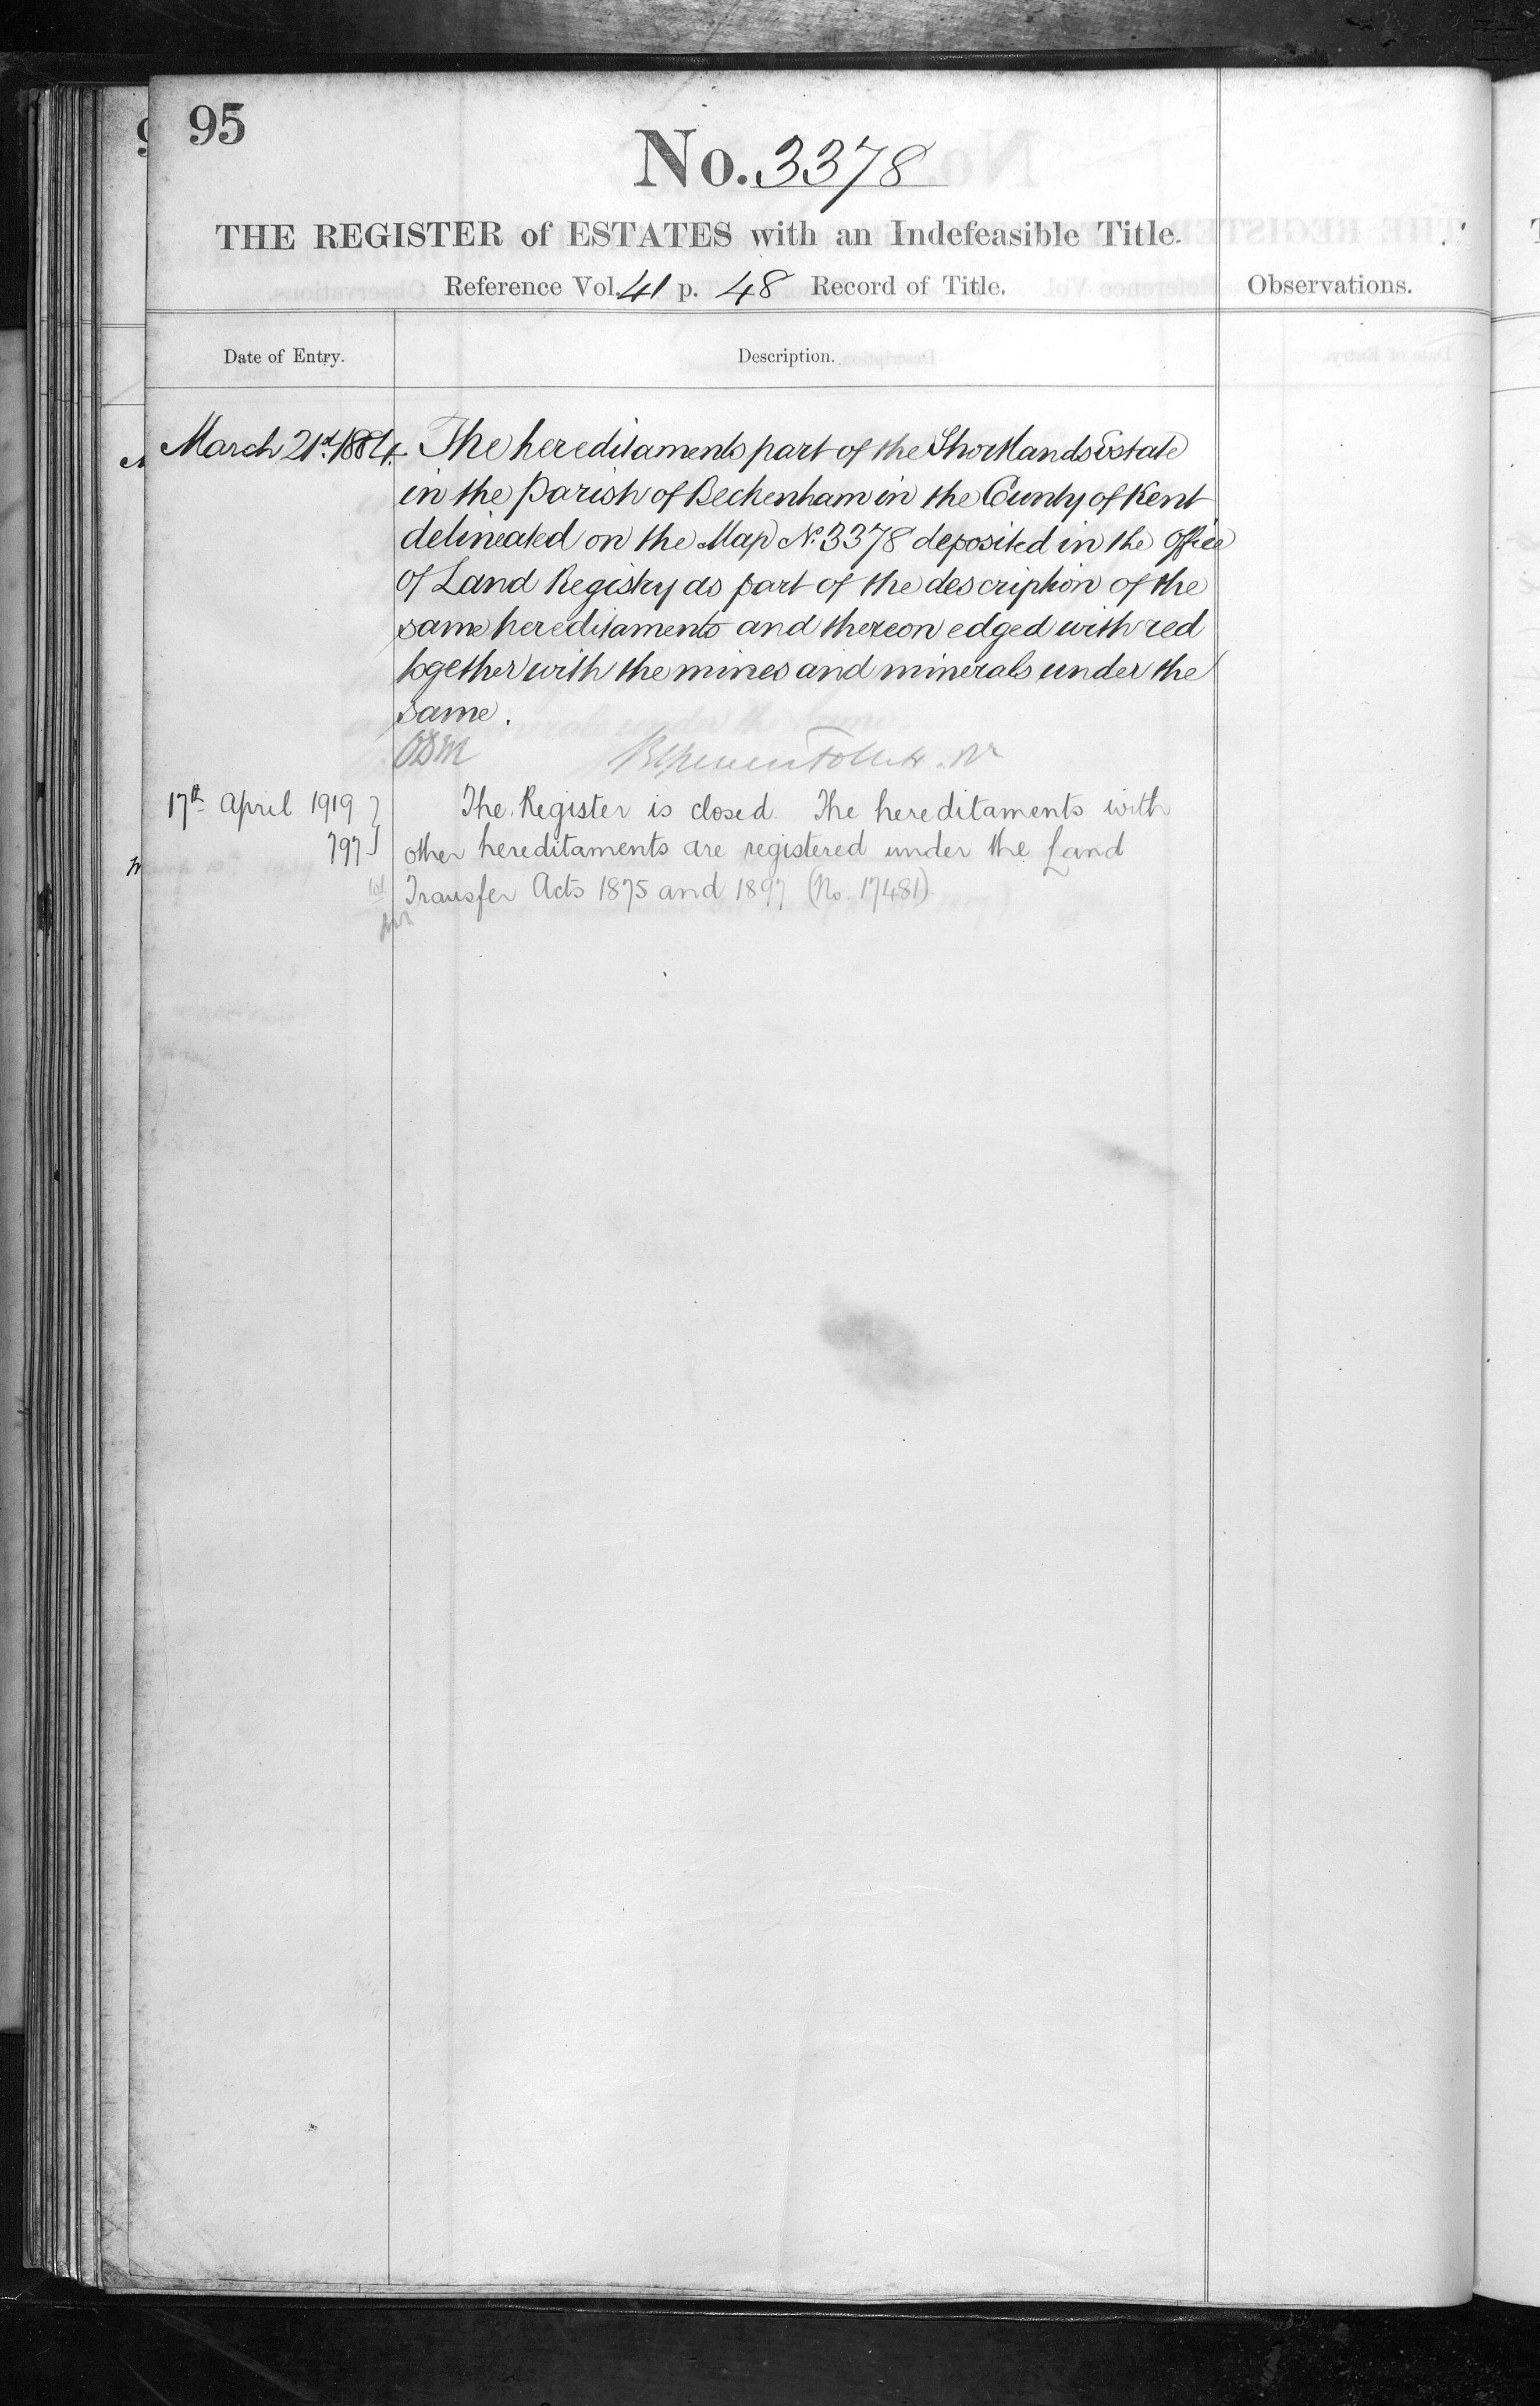 95
No. 3378
THE REGISTER of ESTATES with an Indefeasible Title.
Reference Vol. 41 p. 48 Record of Title.
Observations.
Date of Entry.
Description.
March 21st 1884.
The hereditaments part of the Shortlands Estate
in the Parish of Beckenham in the County of Kent
delineated on the Map No. 3378 deposited in the Office
of Land Registry as part of the description of the
same hereditaments and thereon edged with red
together with the mines and minerals under the
same.
17th April 1919
797
The Register is closed. The hereditaments with
other hereditaments are registered under the Land
Transfer Acts 1875 and 1897 (No. 17481)